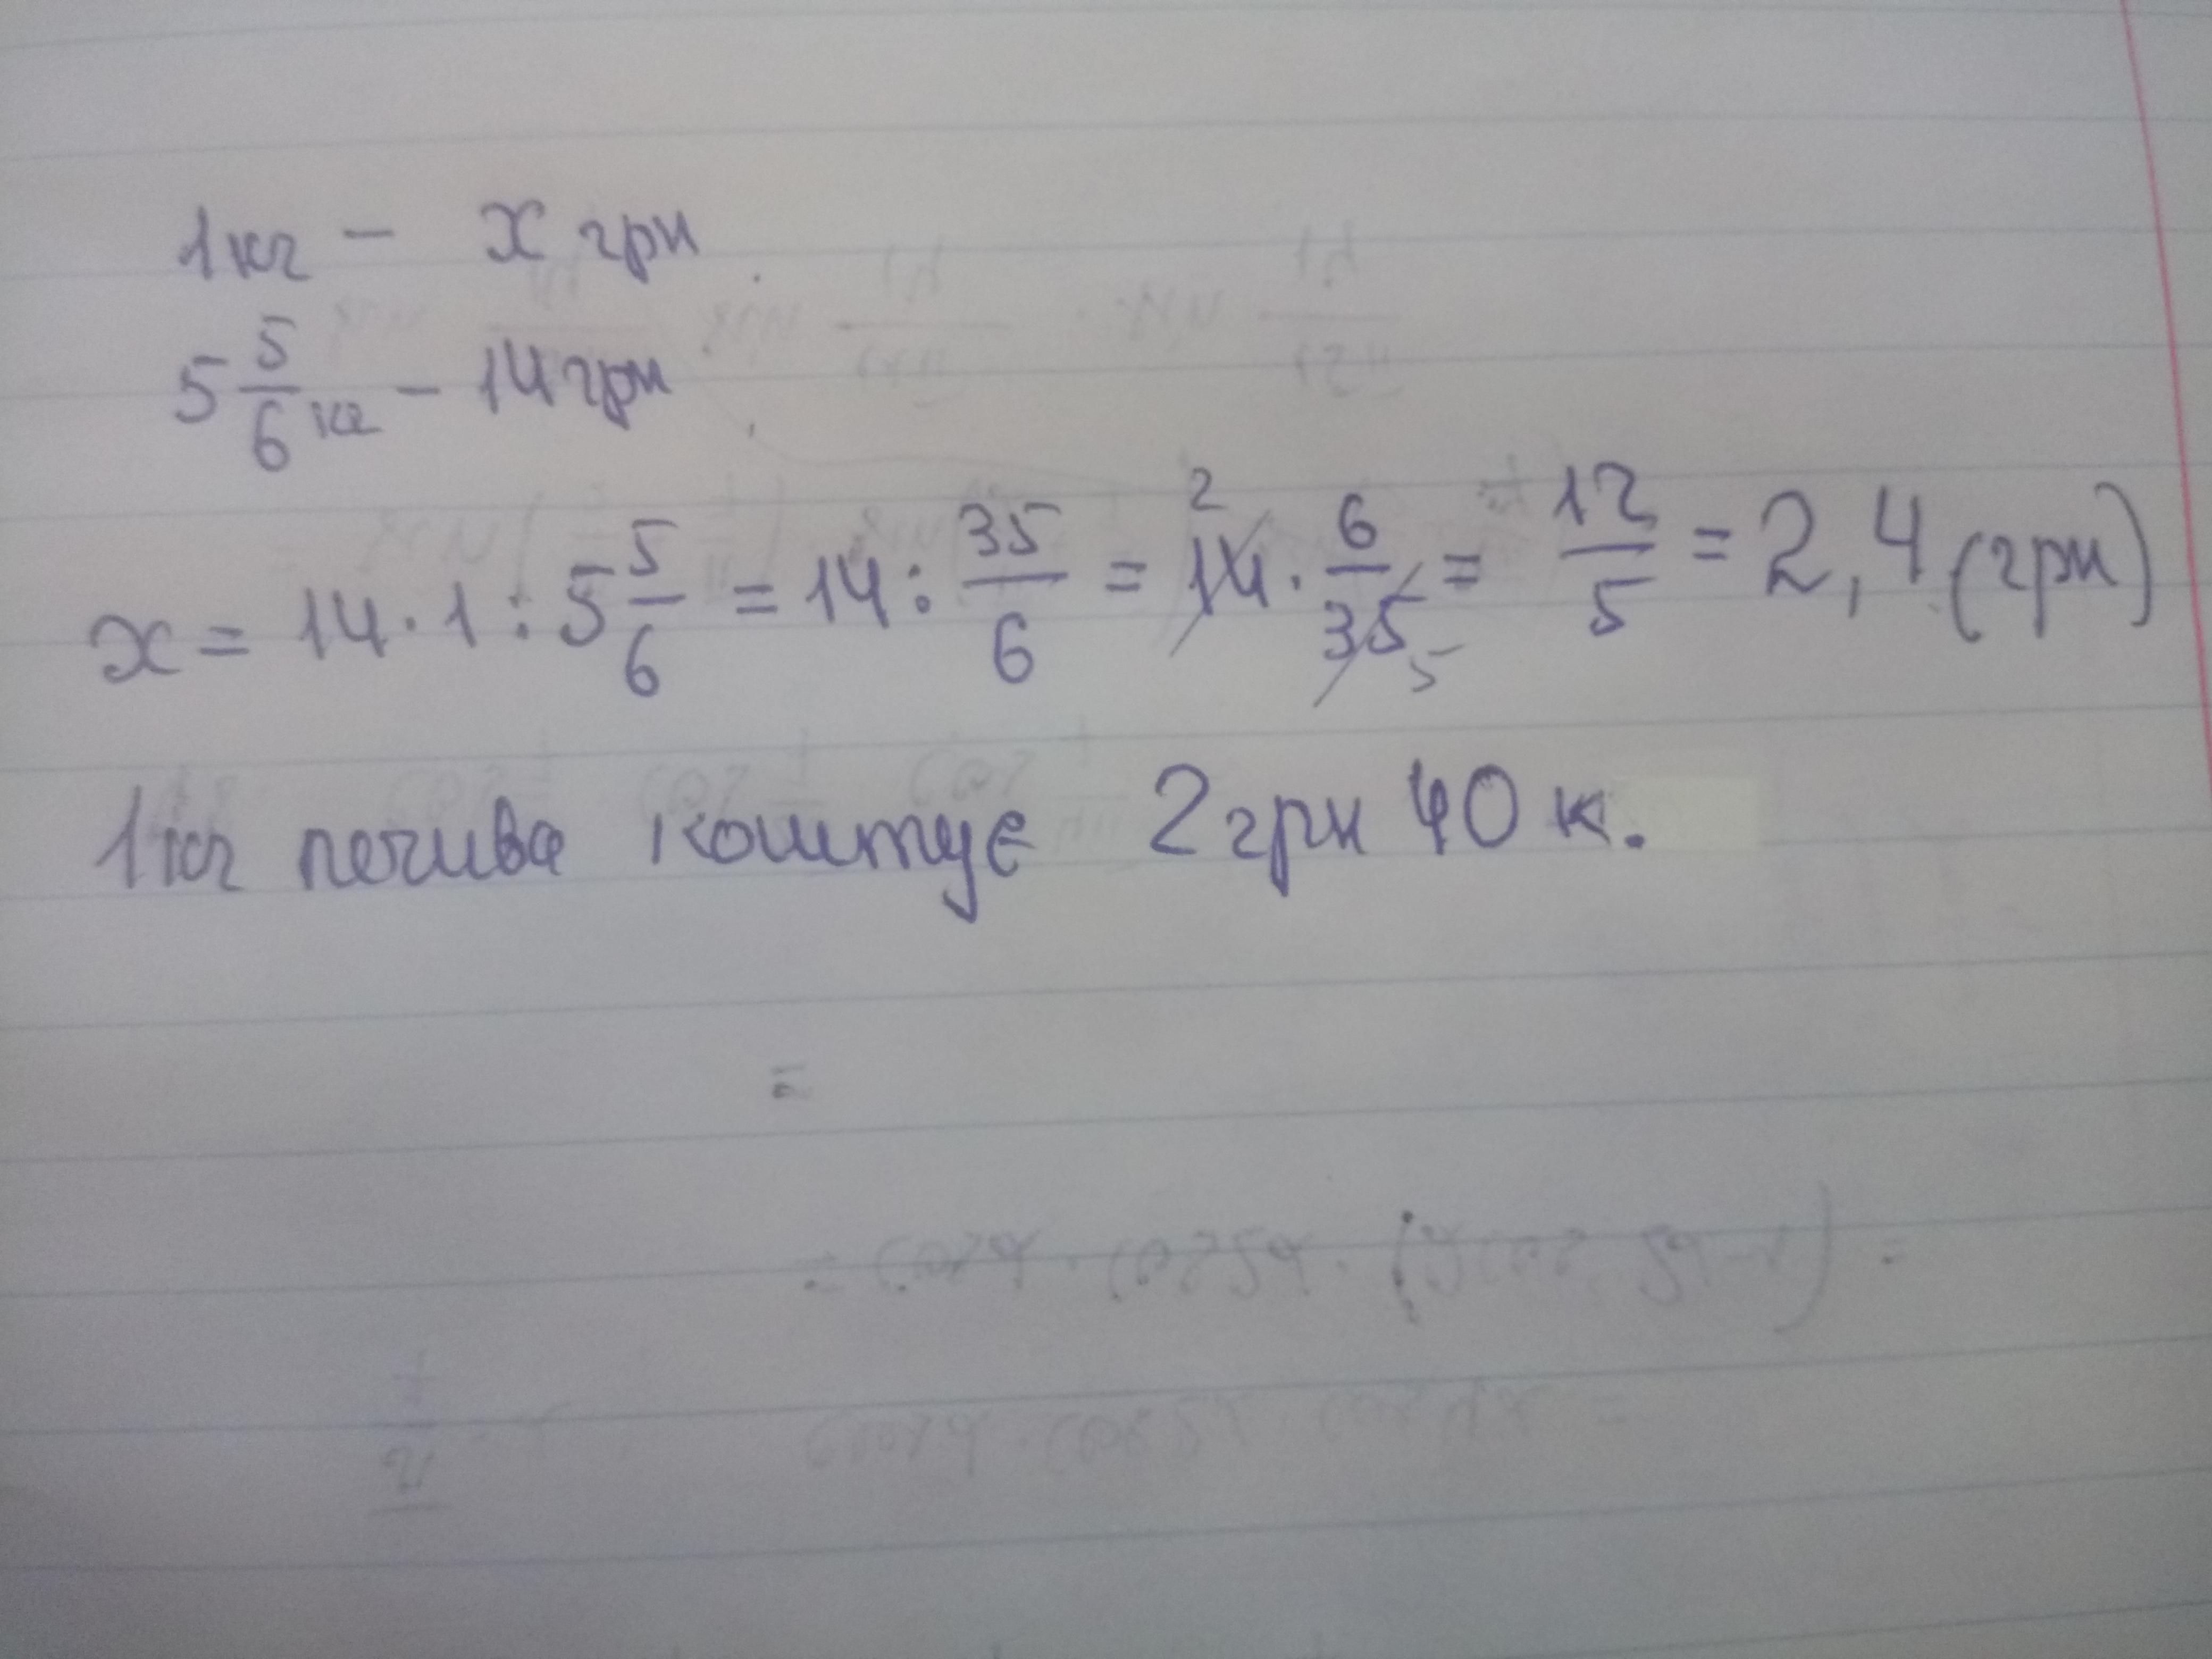 1кг - x грн
5 5/6 кг - 14 грн
x = 14 · 1 : 5 5/6 = 14 : 35/6 = 14 2 · 6/35 5 = 12/5 = 2,4 (грн)
1кг печива коштує 2 грн 40 к.
=